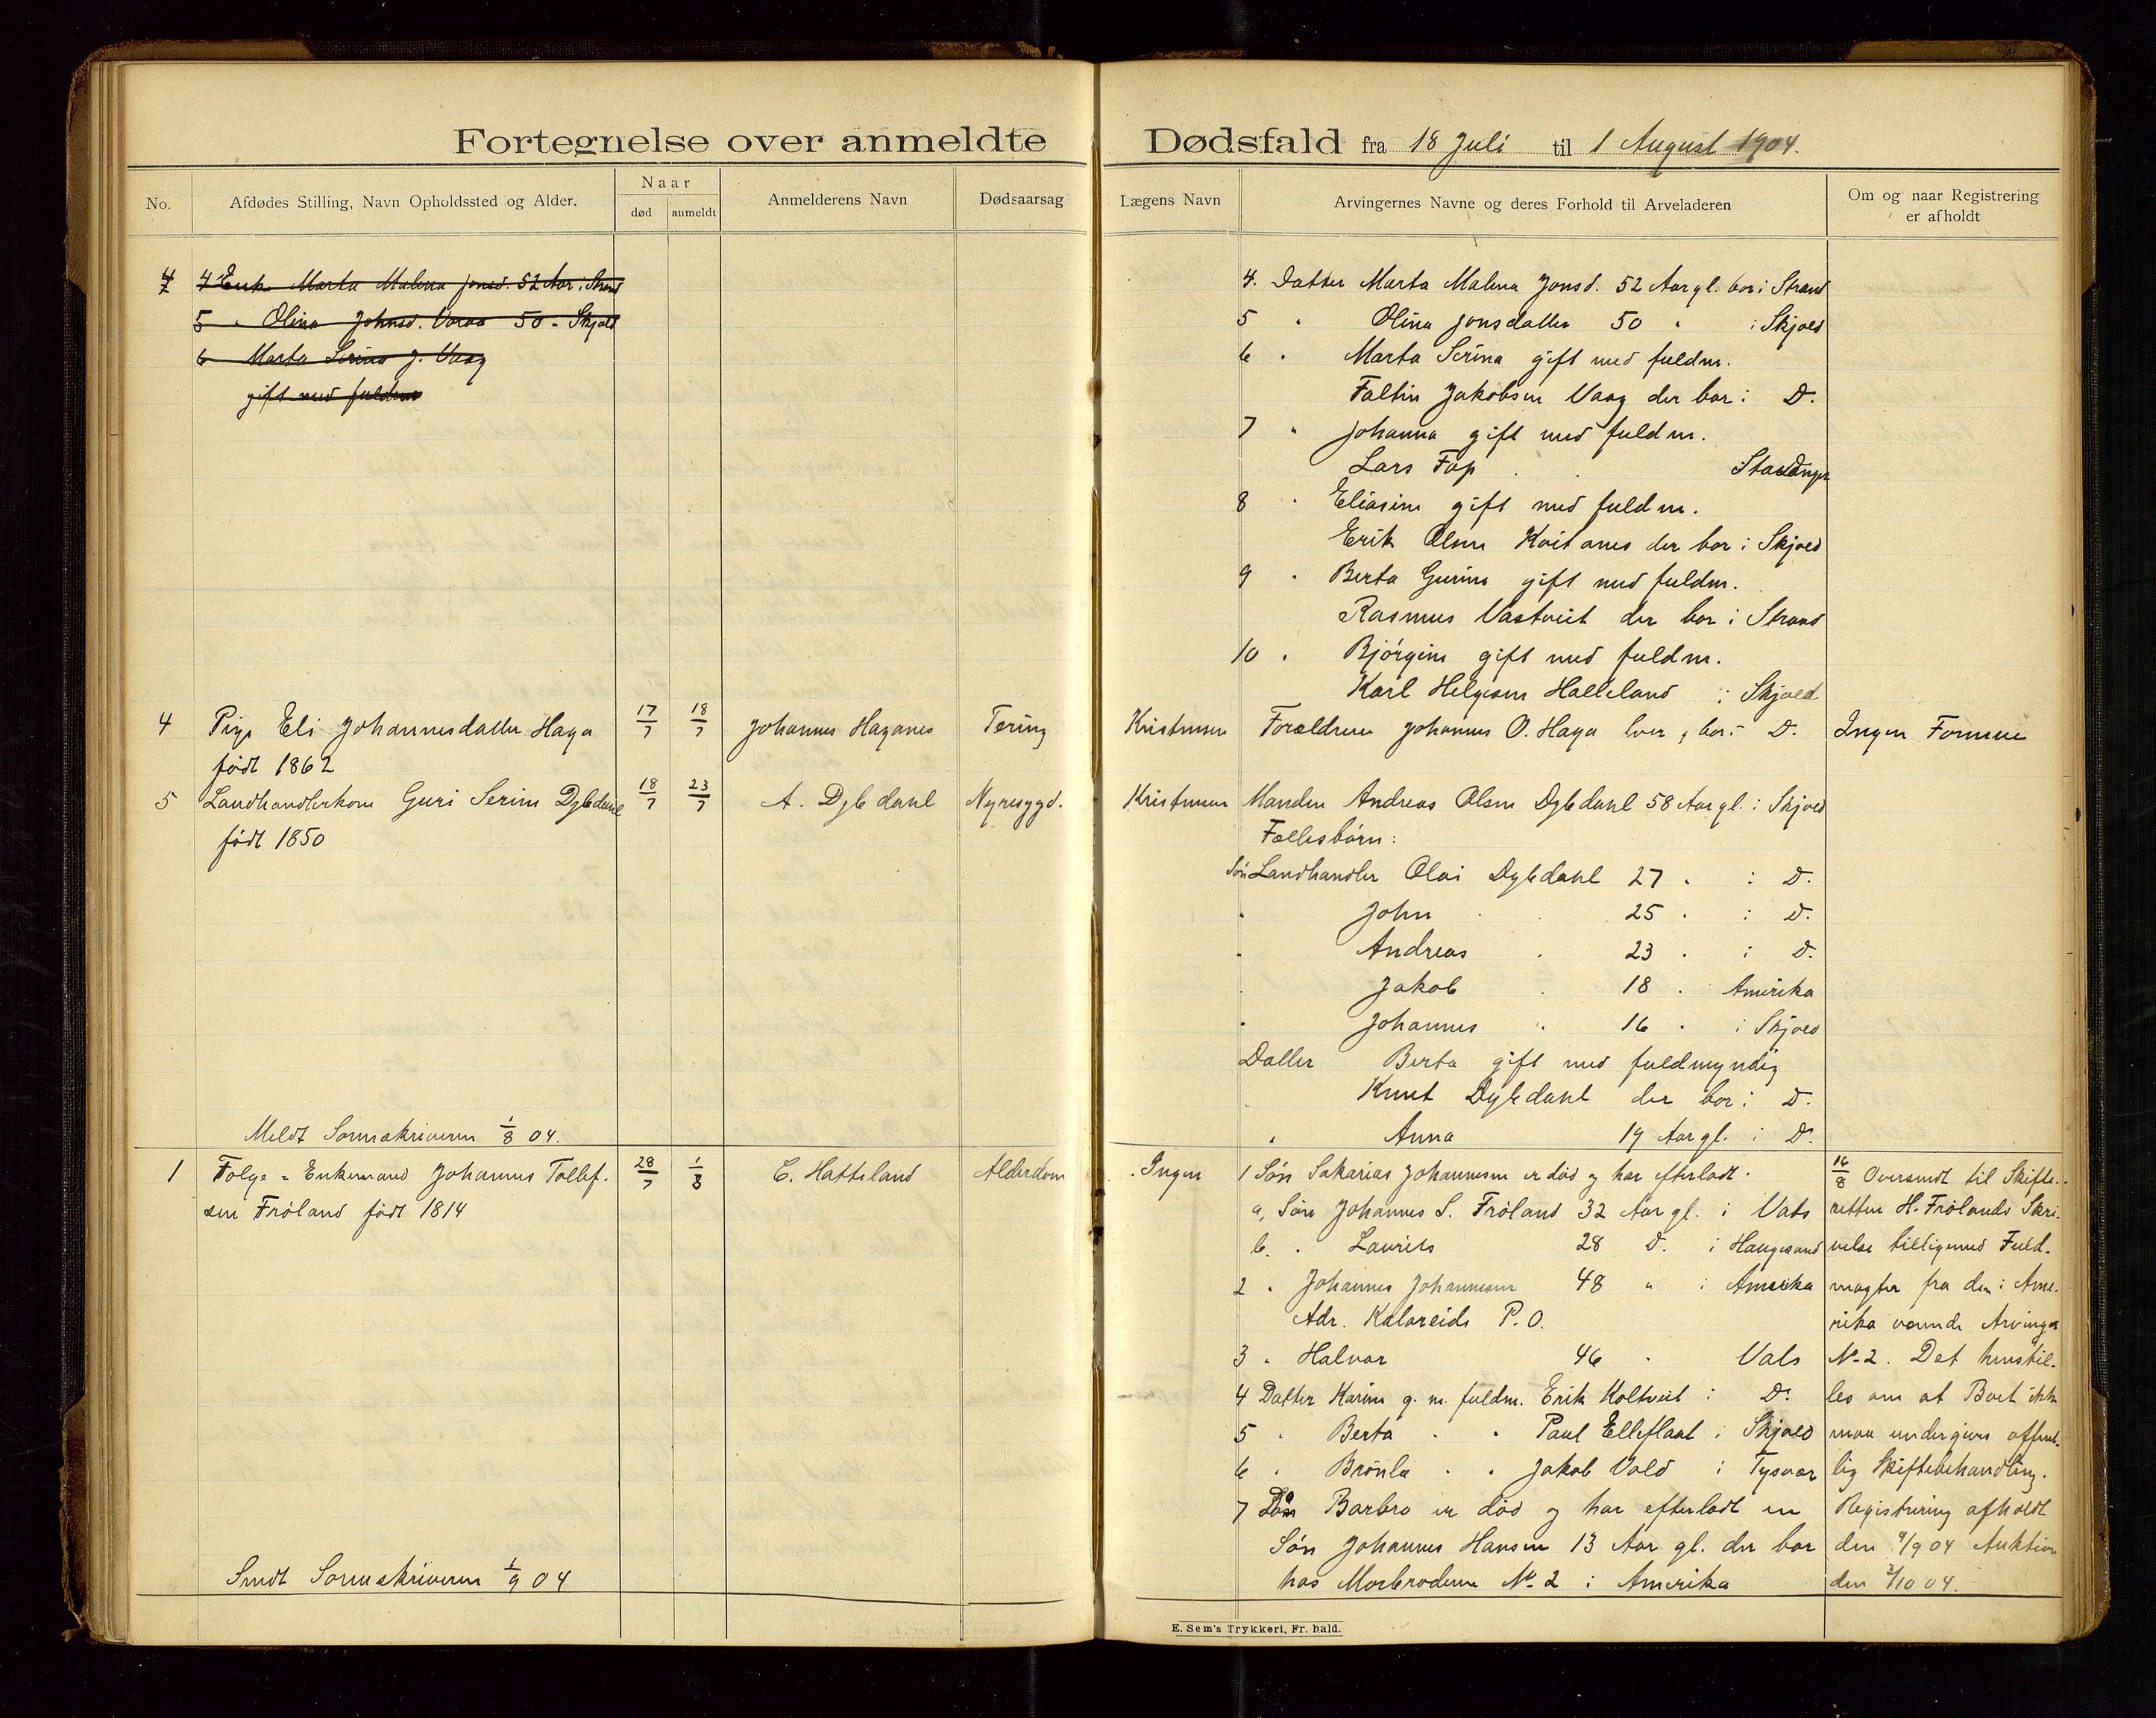 Fortegnelse over anmeldte Dødsfald fra 18 Juli til 1 August 1904.
No.
Afdødes Stilling, Navn Opholdssted og Alder.
Naar
død
anmeldt
Anmelderens Navn
Dødsaarsag
Lægens Navn
Arvingernes Navne og deres Forhold til Arveladeren
Om og naar Registrering
er afholdt
4 Enk Marta Malena Jonsd. 52 Aar i Strand
5 " Olina Johnsd. 50 " Skjold
6 Marta Serina g. Vaag
gift med fuldm
4. Datter Marta Malena Jonsd. 52 Aar gl. bor i Strand
5 " Olina Jonsdatter 50 " i Skjold
6 " Marta Serina gift med fuldm.
Faltin Jakobsen Vaag der bor i D.
7 " Johanna gift med fuldm.
Lars Fop Stavanger
8 " Eliasine gift med fuldm.
Erik Olsen Kvitanes der bor i Skjold
9 " Berta Gurine gift med fuldm.
Rasmus Vastveit der bor i Strand
10 " Bjørgine gift med fuldm.
Karl Helgesen Halleland i Skjold
4 Pige Eli Johannesdatter Haga 17/7 18/7 Johannes Haganes Tering Kristensen Forældrene Johannes O. Haga lever, bor i D. Ingen Formue
født 1862
5 Landhandlerkone Guri Serine Dybdahl 18/7 23/7 A. Dybdahl Nyresygd. Kristensen Manden Andreas Olsen Dybdahl 58 Aar gl. i Skjold
født 1850
Fællesbörn:
Søn Landhandler Olai Dybdahl 27 " i D.
" John 25 " i D.
" Andreas 23 " i D.
" Jakob 18 " Amerika
" Johannes 16 " i Skjold
Datter Berta gift med fuldmyndig
Knut Dybdahl der bor i D.
" Anna 19 Aar gl. i D.
Meldt Sorenskriveren 1/8 04.
1 Folge = Enkemand Johannes Tollef- 28/7 1/8 E. Hatteland Alderdom Ingen
sen Fröland født 1814
1 Søn Sakarias Johannesen er död og har efterladt:
a, Søn Johannes S. Fröland 32 Aar gl. i Vats
b. " Laurits 28 D. i Haugesund
2 " Johannes Johannesen 48 " i Amerika
Adr. Kalareids P.O.
3 " Halvor 46 " Vats
4 Datter Karine g. m. fuldm. Erik Koltveit i D.
5 " Berta " " Paul Elleflaat i Skjold
6 " Brönla " " Jakob Vold i Tysvær
7 Barbro er död og har efterladt en
Søn Johannes Hansen 13 Aar gl. der bor
hos Morbroderen No 2 i Amerika
16/8 Oversendt til Skifte-
retten H. Frölands Skri-
velse tilligemed Fuld-
magter fra den i Ame-
rika værende Arvinge
No 2. Det henstil-
les om at Boet ikke
maa undergives offent-
lig Skiftebehandling.
Registrering afholdt
den 9/9 04 Auktion
den 3/10 04.
Sendt Sorenskriveren 1/9 04
E. Sem's Trykkeri, Fr. hald.